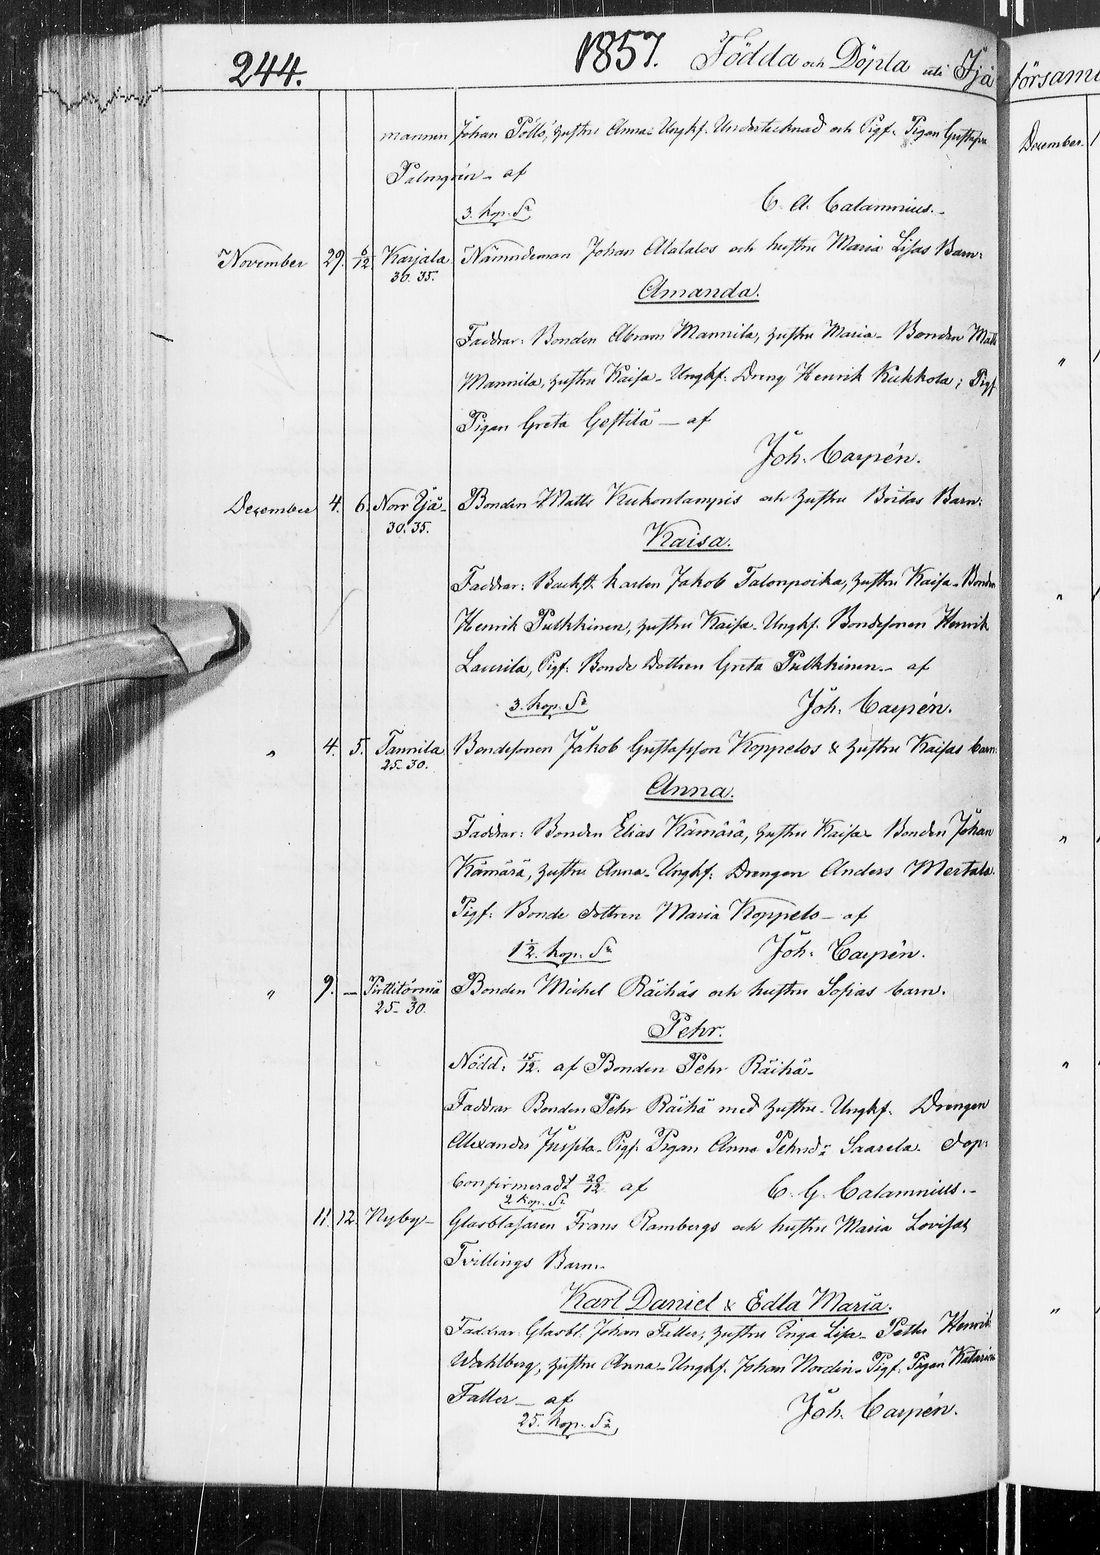 244. 1857. Födda och Döpta uti Ijå församl
mannen Johan Pöllö, hustru Anna. Ungkf. Undertecknad och Pigf. Pigan Gustafva
Palmgrén - af
3. kop. Sr C. A. Calamnius.
November 29. 6/12. Karjala Nämndeman Johan Alatalos och hustru Maria Lisas Barn:
36. 35.
Amanda.
Faddrar: Bonden Abram Mannila, hustru Maria - Bonden Matts
Mannila, hustru Kaisa - Ungkf: Dreng Henrik Kukkola; Pigf.
Pigan Greta Gestilä - af
Joh. Carpén.
December 4. 6. Norr Ijå Bonden Matts Kukonlampis och hustru Britas Barn:
30. 35.
Kaisa.
Faddrar: Backst. karlen Jakob Talonpoika, hustru Kaisa - Bonden
Henrik Pulkkinen, hustru Kaisa - Ungkf. Bondesonen Henrik
Laurila, Pigf: Bonde dottren Greta Pulkkinen - af
3. kop. Sr Joh. Carpén.
" 4. 5. Tannila Bondesonen Jakob Gustafsson Koppelos & hustru Kaisas barn:
25-30.
Anna.
Faddrar: Bonden Elias Kämärä, hustru Kaisa - Bonden Johan
Kämärä, hustru Anna - Ungkf: Drengen Anders Mertala.
Pigf: Bonde dottren Maria Koppelo - af
1 1/2. kop. Sr Joh. Carpén.
" 9. - Pirttitörmä Bonden Michel Räihäs och hustru Sofias barn.
25-30.
Pehr.
Nödd: 15/12. af Bonden Pehr Räihä -
Faddrar Bonden Pehr Räihä med hustru - Ungkf. Drengen
Alexander - Pigf. Pigan Anna Pehrsdr Saarela. Dop:
Confirmeradt 20/12 af C. G. Calamnius.
2 kop. Sr
11. 12. Nyby - Glasblasaren Frans Rambergs och hustru Maria Lovisas
Tvillings Barn -
Karl Daniel & Edla Maria.
Faddrar: Glasbl. Johan Faller, hustru Inga Lisa - Henrik
Wahlberg, hustru Anna - Ungkf. Johan Nordin - Pigf. Pigan Katarina
Faller - af Joh. Carpén.
25. kop. Sr
December
"
"
"
"
"